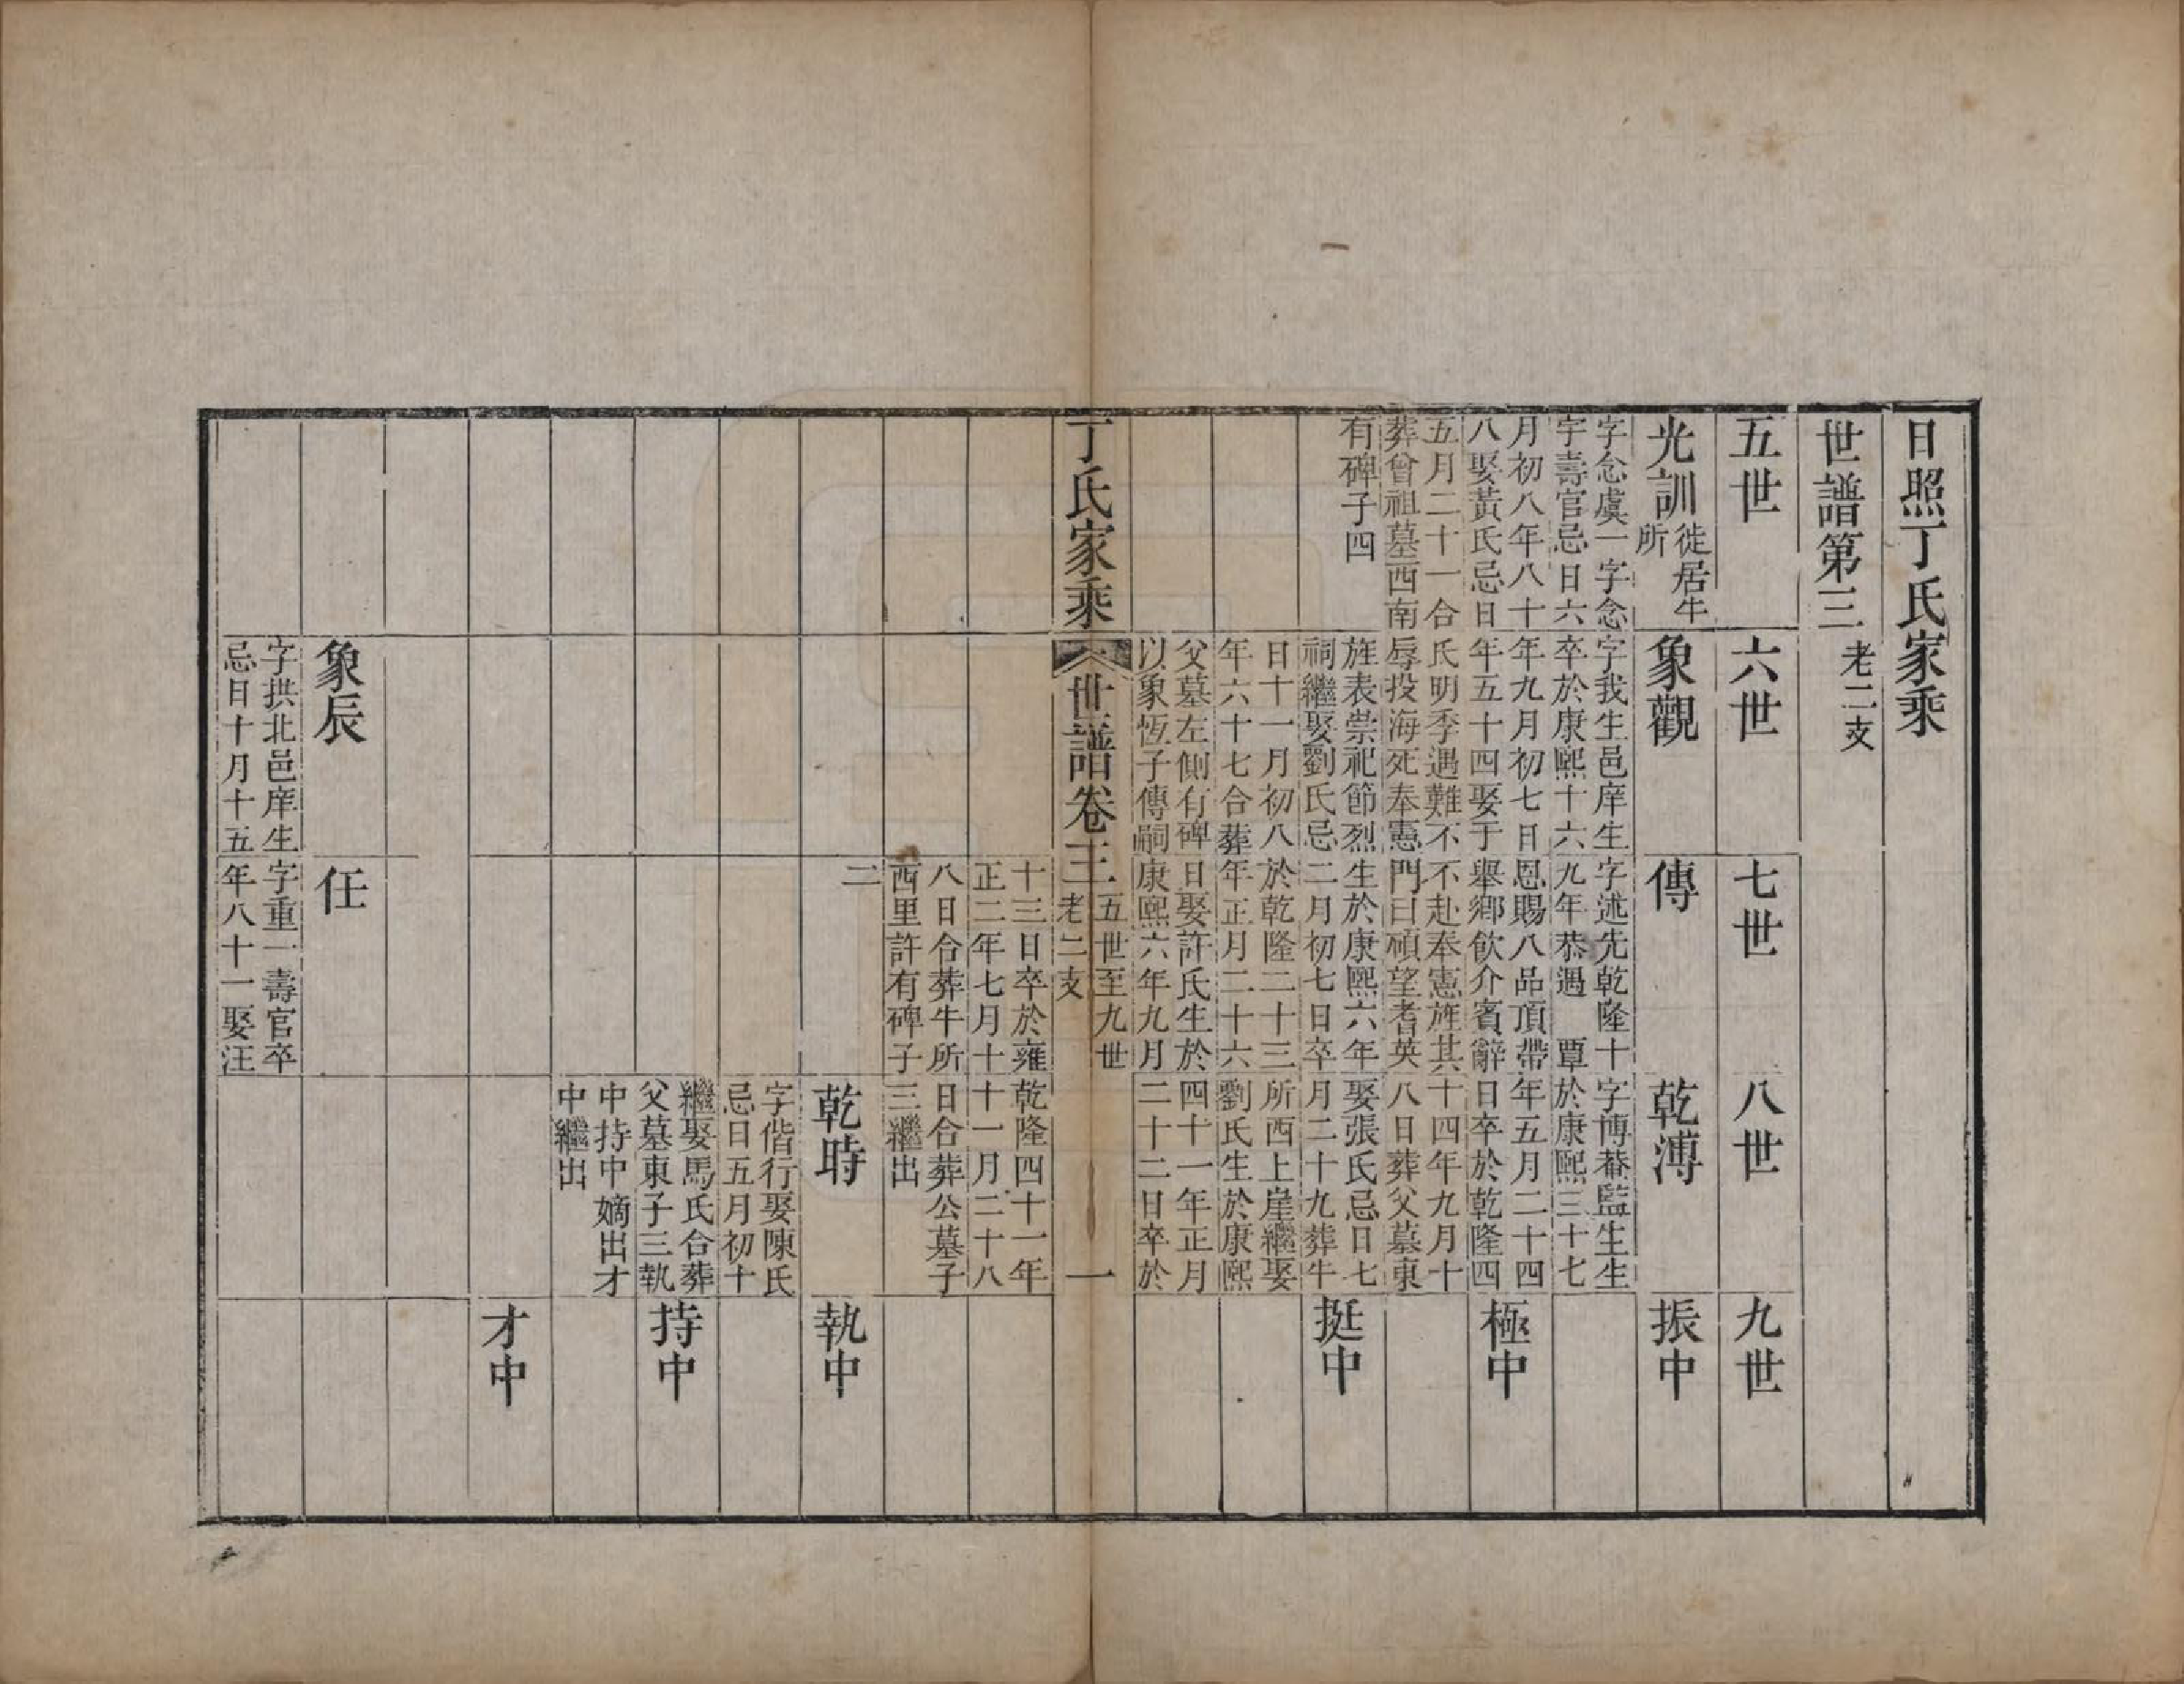 日照丁氏家乘
世譜第三
老二支
五世
六世
七世
八世
九世
光訓
徙居牛
所
字念虞一字念
宇壽官忌日六
月初八年八十
八娶黃氏忌日
五月二十一合
葬曾祖墓西南
有碑子四
象觀
字我生邑庠生
卒於康熙十六
年九月初七日
年五十四娶于
氏明季遇難不
辱投海死奉憲
旌表崇祀節烈
祠繼娶劉氏忌
日十一月初八
年六十七合葬
父墓左側有碑
以象恆子傳嗣
傳
字述先乾隆十
九年恭遇 覃
恩賜八品頂帶
舉鄉飲介賓辭
不赴奉憲旌其
門曰碩望耆英
生於康熙六年
二月初七日卒
於乾隆二十三
年正月二十六
日娶許氏生於
康熙六年九月
十三日卒於雍
正二年七月十
八日合葬牛所
西里許有碑子
二
乾溥
字博菴監生生
於康熙三十七
年五月二十四
日卒於乾隆四
十四年九月十
八日葬父墓東
娶張氏忌日七
月二十九葬牛
所西上崖繼娶
劉氏生於康熙
四十一年正月
二十二日卒於
乾隆四十一年
十一月二十八
日合葬公墓子
三繼出
振中
極中
挺中
丁氏家乘
世譜卷三
五世至九世
老二支
一
乾時
字偕行娶陳氏
忌日五月初十
繼娶馬氏合葬
父墓東子三執
中持中嫡出才
中繼出
執中
持中
才中
象辰
字拱北邑庠生
忌日十月十五
任
字重一壽官卒
年八十一娶汪